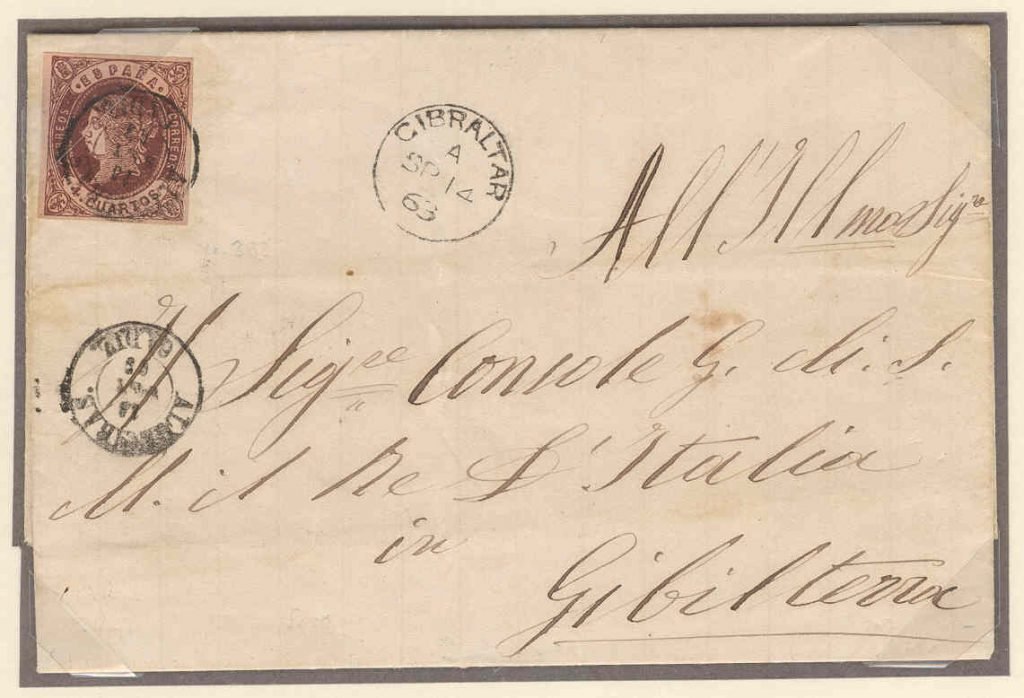 ESPAÑA
CORREOS CORREOS
4. CUARTOS.
GIBRALTAR
A
SP 14
63
All'Ill mo Sig re
Al Sig re Console G. di S.
M. il Re D'Italia
in
Gibilterra
ALGECIRAS.
CADIZ.
63